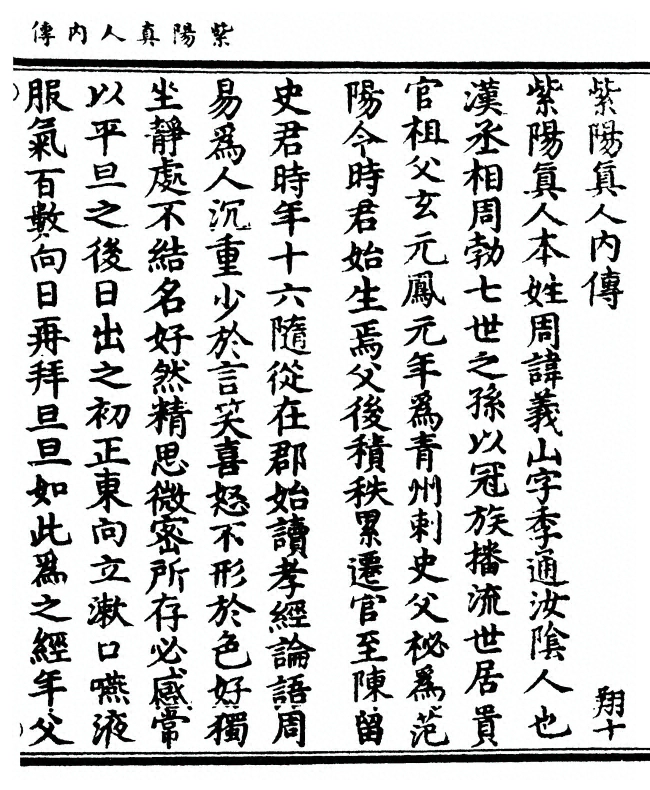 紫陽真人内傳
紫陽眞人内傳
翔十
紫陽眞人本姓周諱義山字季通汝陰人也
漢丞相周勃七世之孫以冠族播流世居貴
官祖父玄元鳳元年爲青州刺史父柲爲范
陽令時君始生焉父後積秩累遷官至陳留
史君時年十六隨從在郡始讀孝經論語周
易爲人沉重少於言笑喜怒不形於色好獨
坐靜處不結名好然精思微密所存必感常
以平旦之後日出之初正東向立漱口嚥液
服氣百數向日再拜旦旦如此爲之經年父